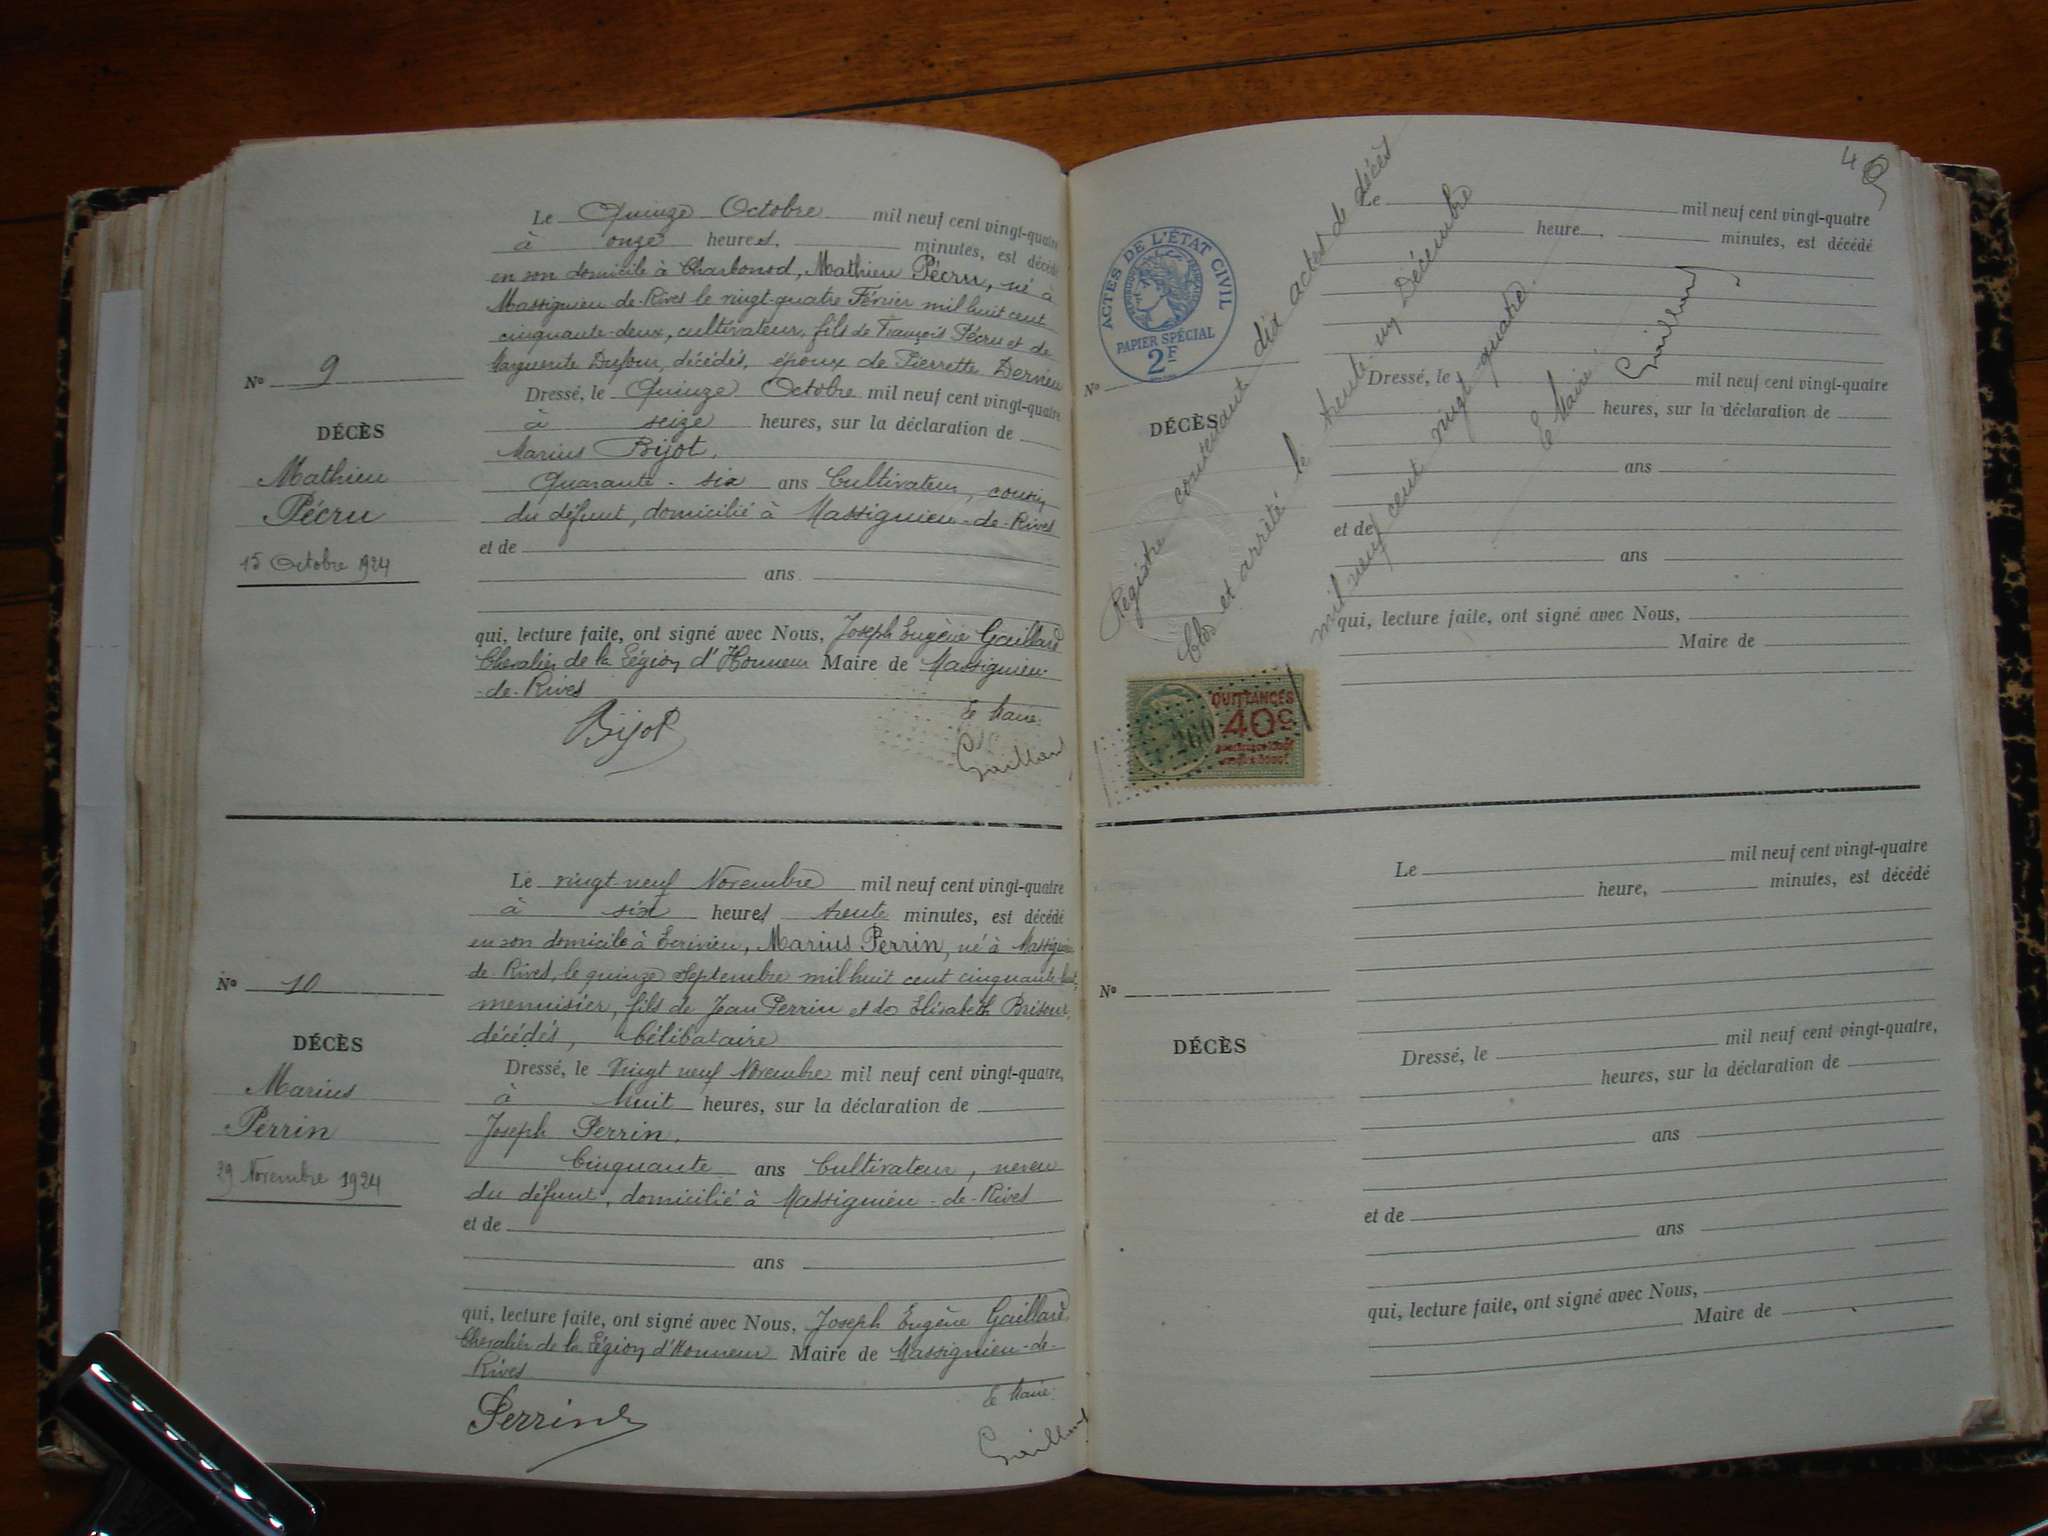 Le Quinze Octobre mil neuf cent vingt-quatre
à onze heures, minutes, est décédé
en son domicile à Charbonod, Mathieu Pécru, né à
Massignieu-de-Rives le vingt-quatre Février mil huit cent
cinquante-deux, cultivateur, fils de François Pécru et de
Marguerite Dufour, décédés, époux de Pierrette Dernieu
No 9
Dressé, le Quinze Octobre mil neuf cent vingt-quatre
à seize heures, sur la déclaration de
DÉCÈS
Marius Bijot,
Mathieu
Quarante-six ans Cultivateur, cousin
Pécru
du défunt, domicilié à Massignieu-de-Rives
et de
15 Octobre 1924
ans
qui, lecture faite, ont signé avec Nous, Joseph Eugène Gaillard
Chevalier de la Légion d'Honneur Maire de Massignieu-
-de-Rives
Bijot
Le Maire:
Gaillard
Le vingt-neuf Novembre mil neuf cent vingt-quatre
à six heures trente minutes, est décédé
en son domicile à Ecrivieu, Marius Perrin, né à Massignieu
de-Rives, le quinze Septembre mil huit cent cinquante-huit,
No 10
menuisier, fils de Jean Perrin et de Elisabeth
décédés, Célibataire
DÉCÈS
Dressé, le Vingt neuf Novembre mil neuf cent vingt-quatre,
Marius
à huit heures, sur la déclaration de
Perrin
Joseph Perrin,
Cinquante ans Cultivateur, neveu
29 Novembre 1924
du défunt, domicilié à Massignieu-de-Rives
et de
ans
qui, lecture faite, ont signé avec Nous, Joseph Eugène Gaillard,
Chevalier de la Légion d'Honneur Maire de Massignieu-de-
Rives
Perrin
Le Maire:
Gaillard
4
ACTES DE L'ÉTAT CIVIL
RÉPUBLIQUE FRANÇAISE
PAPIER SPÉCIAL
2F
Registre contenant dix actes de décès
Clos et arrêté le trente-un Décembre
mil neuf cent vingt-quatre.
Le Maire:
Gaillard
Le mil neuf cent vingt-quatre
heure, minutes, est décédé
No
Dressé, le mil neuf cent vingt-quatre
DÉCÈS
heures, sur la déclaration de
ans
et de
ans
qui, lecture faite, ont signé avec Nous,
Maire de
QUITTANCES
40c
Le mil neuf cent vingt-quatre
heure, minutes, est décédé
No
DÉCÈS
Dressé, le mil neuf cent vingt-quatre,
heures, sur la déclaration de
ans
et de
ans
qui, lecture faite, ont signé avec Nous,
Maire de